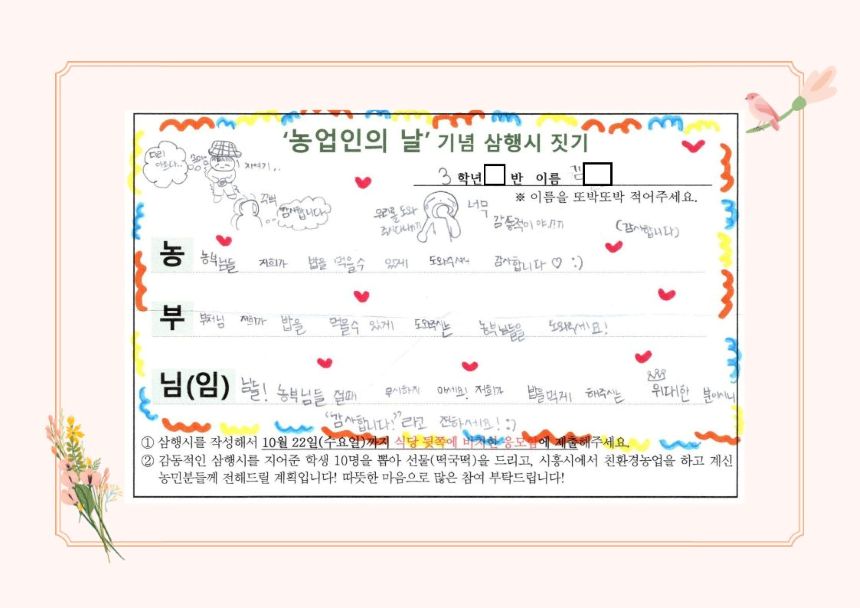 '농업인의 날' 기념 삼행시 짓기
3 학년 반 이름 김
※ 이름을 또박또박 적어주세요.
감사합니다
우리를 도와
주시다니
너무
감동적이야
(감사합니다)
농 농부님들 저희가 밥을 먹을수 있게 도와주셔서 감사합니다♡ :)
부 부처님 저희가 밥을 먹을수 있게 도와주시는 농부님들을 도와주세요!
님(임) 님들! 농부님들 절때 무시하지 마세요! 저희가 밥을먹게 해주시는 위대한 분이시니
"감사합니다!"라고 전하세요! :)
① 삼행시를 작성해서 10월 22일(수요일)까지 식당 뒷쪽에 비치한 응모함에 제출해주세요.
② 감동적인 삼행시를 지어준 학생 10명을 뽑아 선물(떡국떡)을 드리고, 시흥시에서 친환경농업을 하고 계신
농민분들께 전해드릴 계획입니다! 따뜻한 마음으로 많은 참여 부탁드립니다!